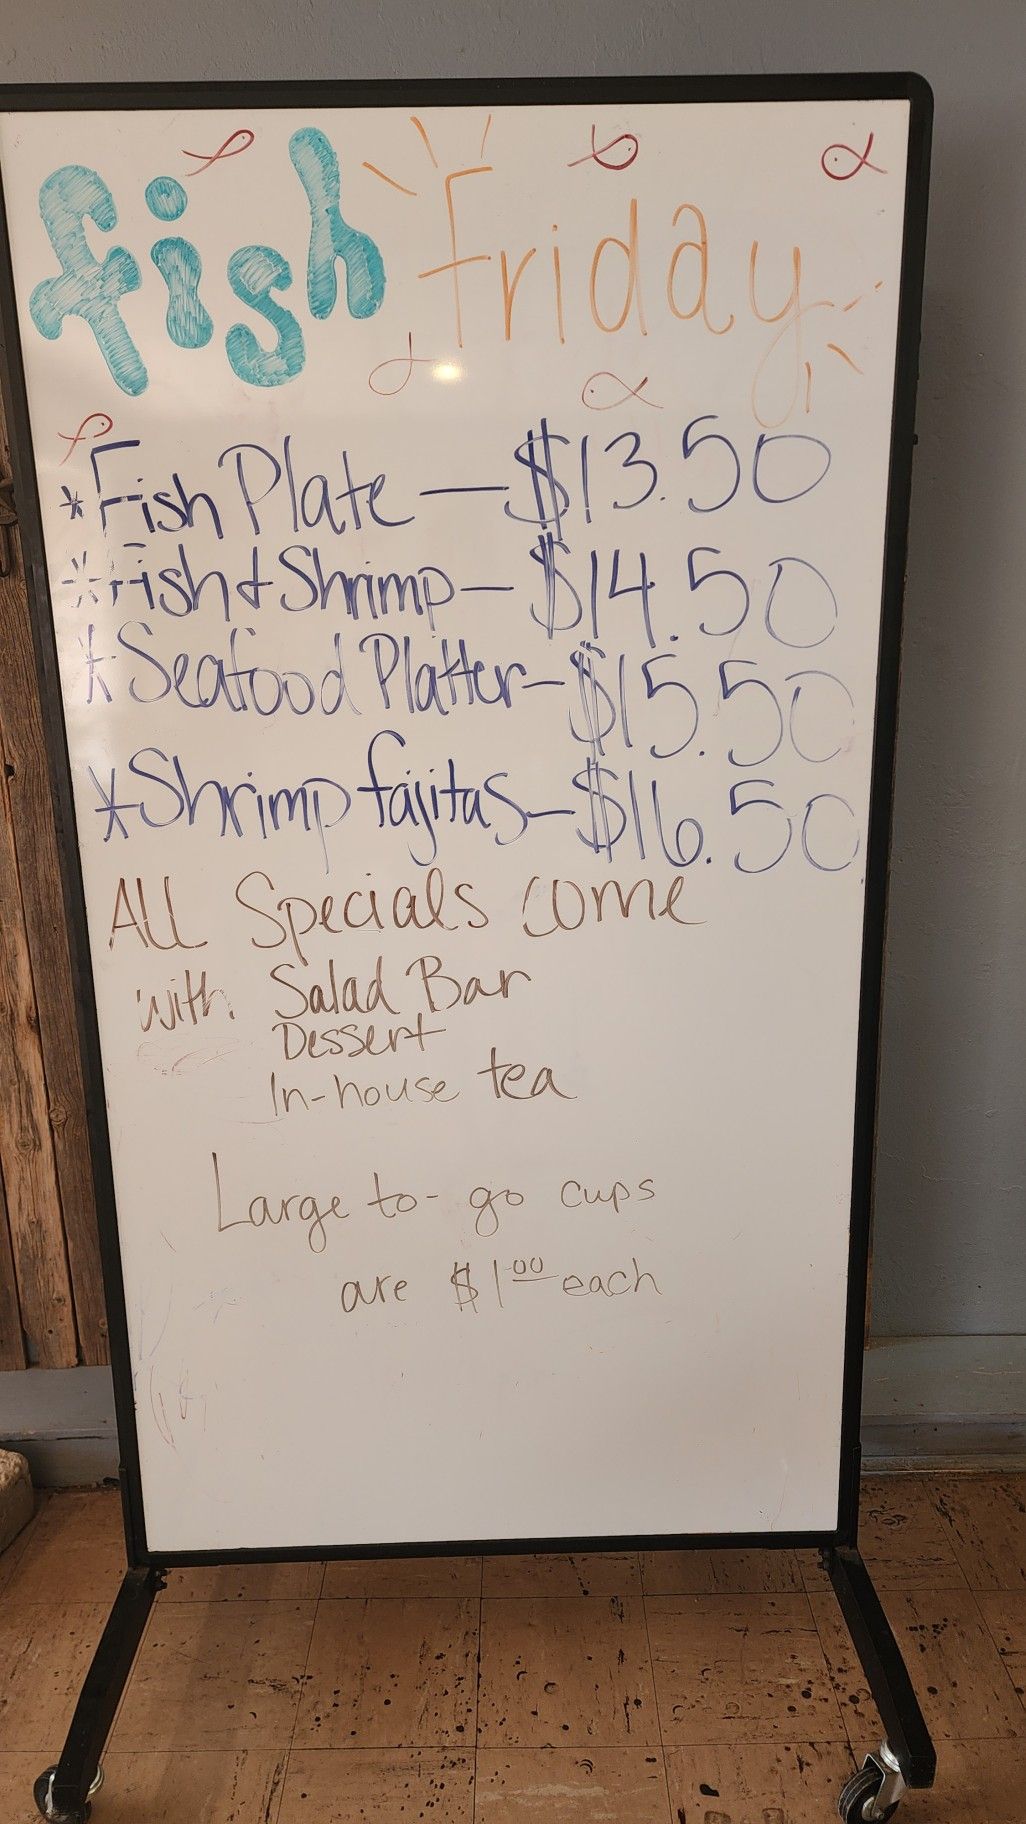 fish Friday
*Fish Plate — $13.50
*Fish & Shrimp — $14.50
*Seafood Platter — $15.50
*Shrimp fajitas — $16.50
ALL Specials come
with Salad Bar
Dessert
In-house tea
Large to-go cups
are $1.00 each